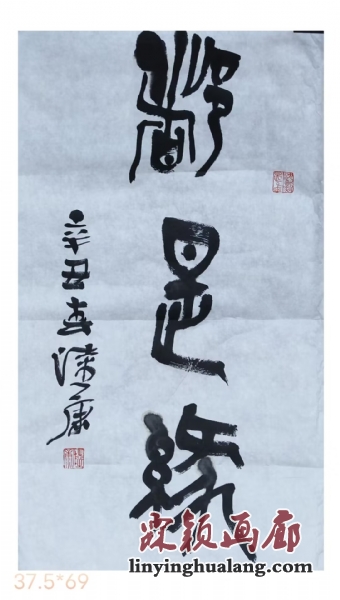 都是緣
辛丑春
霖颖画廊
linyinghualang.com
37.5*69